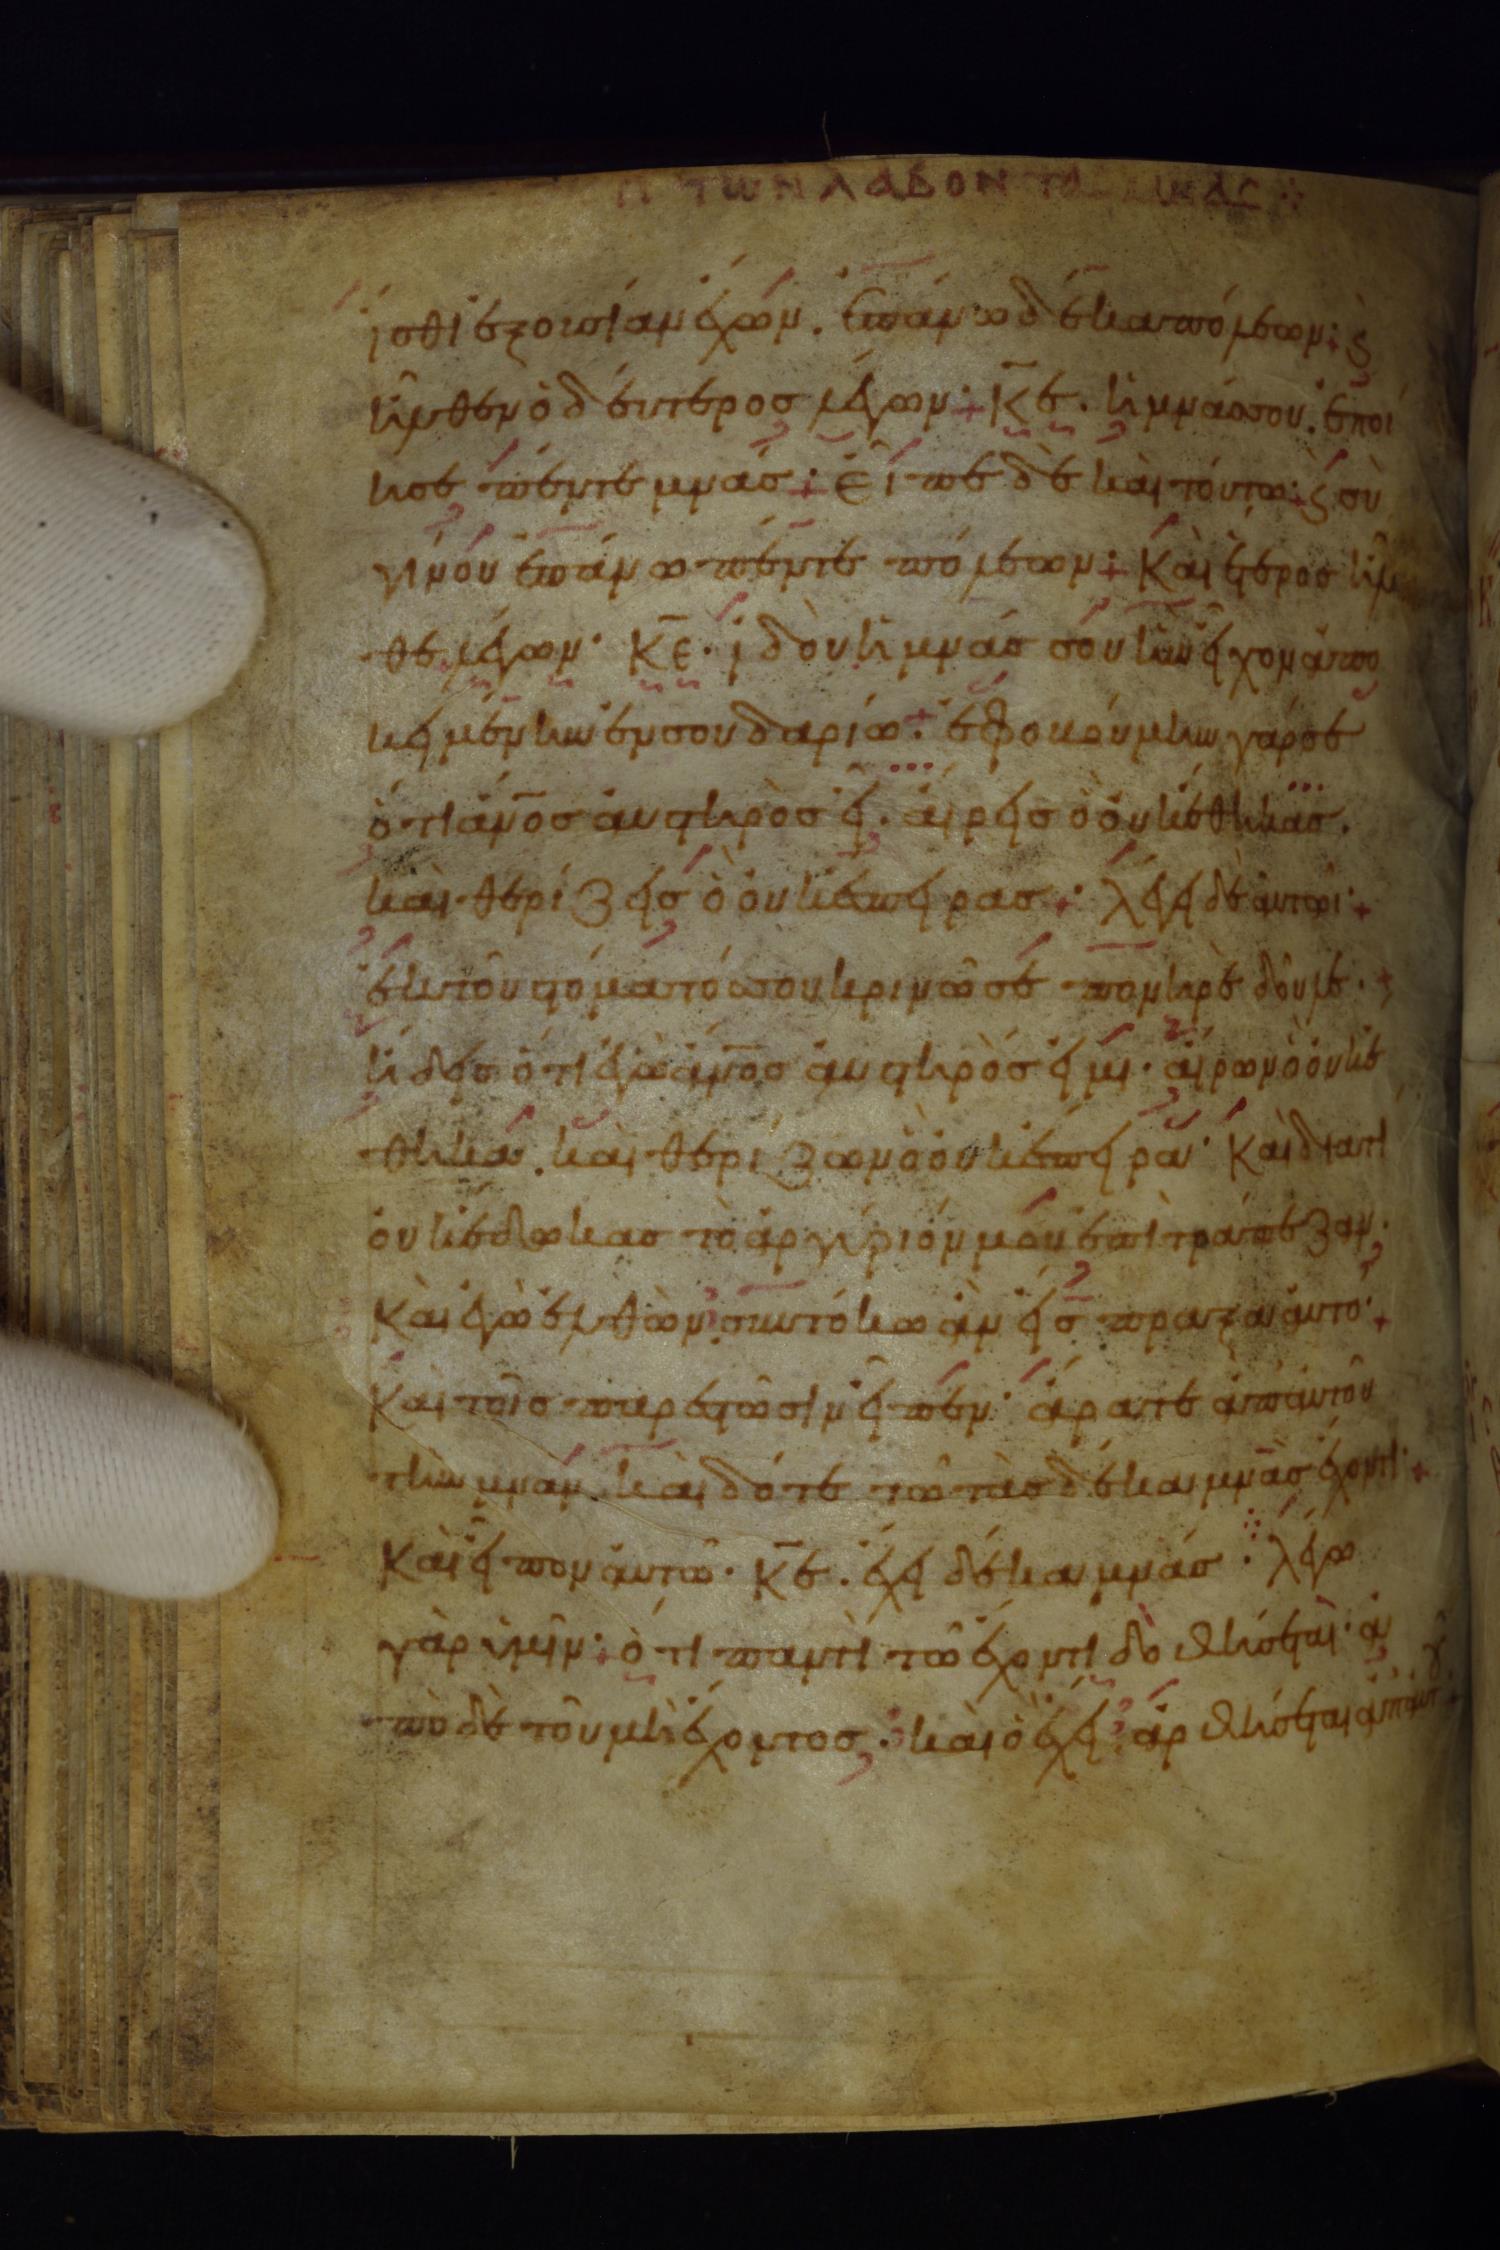 Π ΤΩΝ ΛΑΒΟΝΤΩ ΜΝΑΣ
ἴσθι ἐξουσίαν ἔχων. ἐπάνω δέκα πόλεων· ϗ
ἦλθεν ὁ δεύτερος λέγων· κ̅ε̅. ἡ μνᾶ σου. ἐποί
ησε πέντε μνάς· εἶπε δὲ καὶ τούτω· ϗ σὺ
γίνου ἐπάνω πέντε πόλεων· Καὶ ἕτερος ἦλ
θε λέγων· κ̅ε̅. ἰδοὺ ἡ μνᾶς σου ἣν εἶχον ἀπο
κειμένην ἐν σουδαρίω· ἐφοκούμην γάρ σε
ὅτι ἄν̅ο̅σ̅ αὐστηρὸς εἶ. αἴρεις ὃ οὐκ ἔθηκας.
καὶ θερίζεις ὃ οὐκ ἔσπειρας· λέγει δὲ αὐτῶ·
ἐκ τοῦ στόματός σου κρινῶ σε πονηρὲ δοῦλε.
ἤδεις ὅτι ἐγὼ ἄν̅ο̅σ̅ αὐστηρός εἰμι. αἴρων ὃ οὐκ ἔ
θηκα. καὶ θερίζων ὃ οὐκ ἔσπειρα· Καὶ διατί
οὐκ ἔδωκας τὸ ἀργύριόν μου ἐπὶ τράπεζαν.
Καὶ ἐγὼ ἐλθὼν. σὺν τόκω ἂν ἔπραξα αὐτό·
Καὶ τοῖς παρεστῶσιν εἶπεν· ἄρατε ἀπ' αὐτοῦ
τὴν μνᾶν. καὶ δότε τῶ τὰς δέκα μνᾶς ἔχοντι·
Καὶ εἶπον αὐτῶ· κ̅ε̅. ἔχει δέκα μνάς· λέγω
γὰρ ὑμῖν· ὅτι παντὶ τῶ ἔχοντι δοθήσεται· ἀ
πὸ δὲ τοῦ μὴ ἔχοντος· καὶ ὃ ἔχει ἀρθήσεται ἀπ' αὐτοῦ